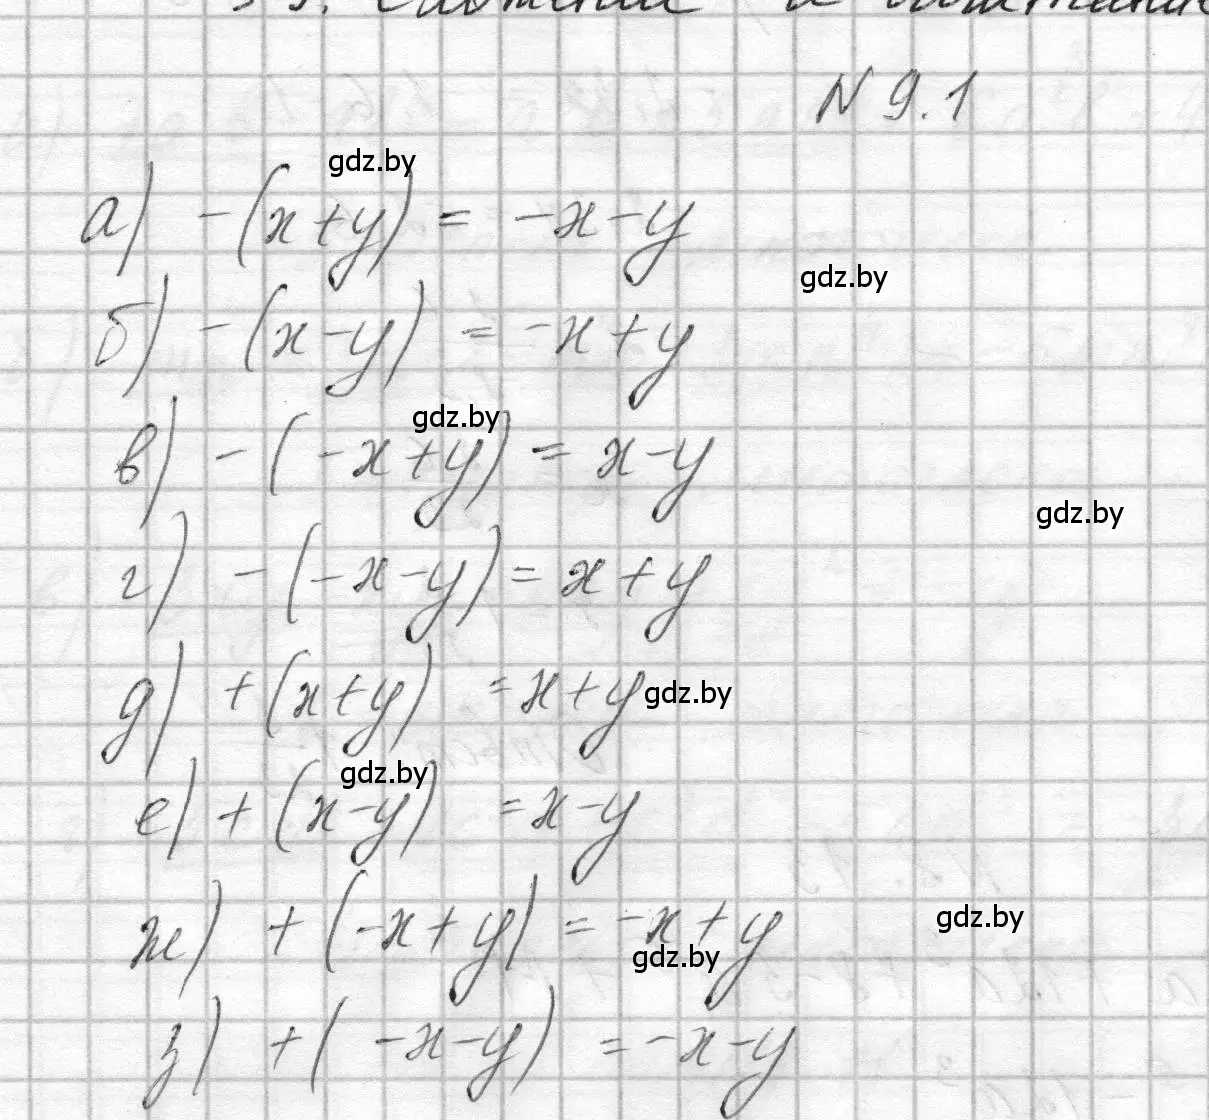 N 9.1
а) -(x+y) = -x-y
б) -(x-y) = -x+y
в) -(-x+y) = x-y
г) -(-x-y) = x+y
д) +(x+y) = x+y
е) +(x-y) = x-y
ж) +(-x+y) = -x+y
з) +(-x-y) = -x-y
gdz.by
gdz.by
gdz.by
gdz.by
gdz.by
gdz.by
gdz.by
gdz.by